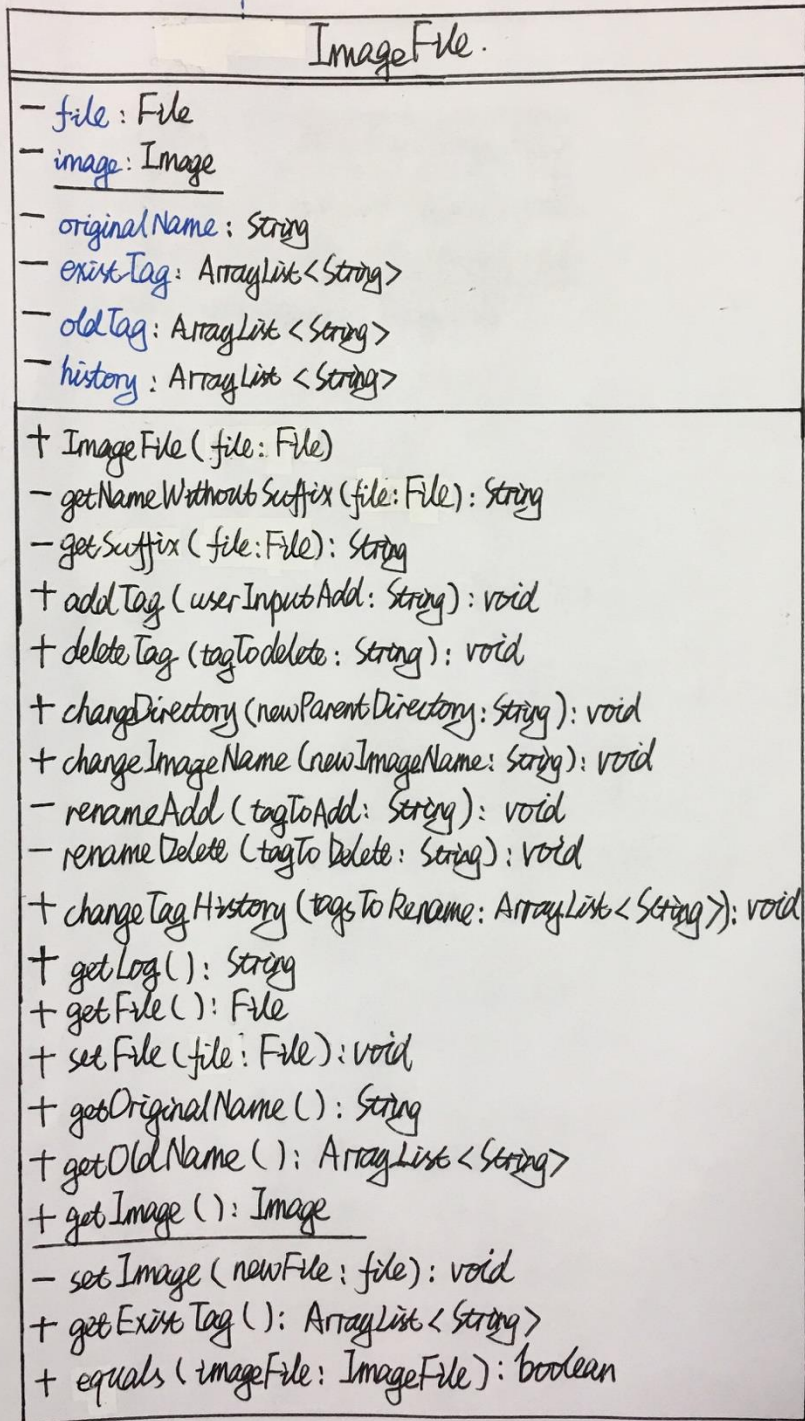 ImageFile.
- file : File
- image : Image
- originalName : String
- existTag : ArrayList<String>
- oldTag : ArrayList <String>
- history : ArrayList <String>
+ ImageFile ( file : File)
- getNameWithoutSuffix (file : File) : String
- getSuffix ( file : File) : String
+ addTag (userInputAdd : String) : void
+ deleteTag (tagTodelete : String) : void
+ changeDirectory (newParentDirectory : String) : void
+ changeImageName (newImageName : String) : void
- renameAdd (tagToAdd : String) : void
- renameDelete (tagToDelete : String) : void
+ changeTagHistory (tagsToRename : ArrayList <String>) : void
+ getLog () : String
+ getFile () : File
+ setFile (file : File) : void
+ getOriginalName () : String
+ getOldName () : ArrayList <String>
+ getImage () : Image
- setImage (newFile : file) : void
+ getExistTag () : ArrayList <String>
+ equals (imageFile : ImageFile) : boolean